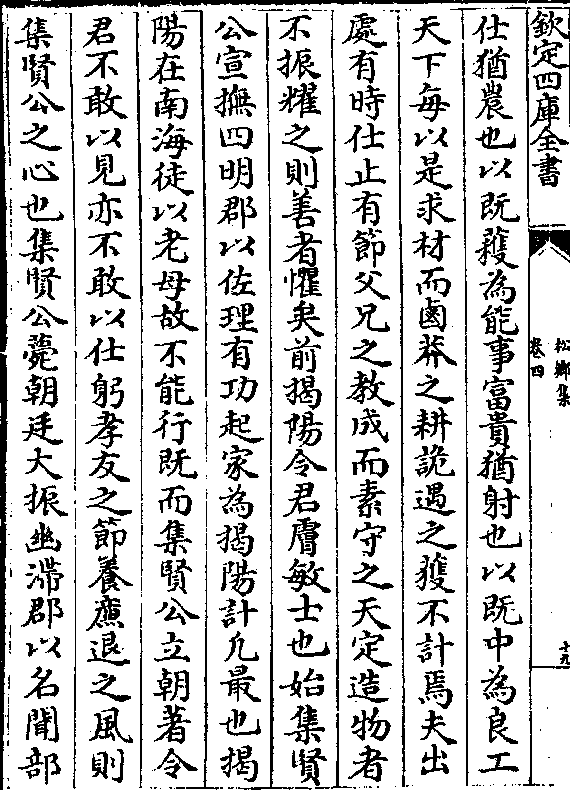 欽定四庫全書
松鄉集
卷四
十九
仕猶農也以既穫為能事富貴猶射也以既中為良工
天下每以是求材而鹵莽之耕詭遇之獲不計焉夫出
處有時仕止有節父兄之教成而素守之天定造物者
不振耀之則善者懼矣前揭陽令君膚敏士也始集賢
公宣撫四明郡以佐理有功起家為揭陽計凡最也揭
陽在南海徒以老母故不能行既而集賢公立朝著令
君不敢以見亦不敢以仕躬孝友之節養廉退之風則
集賢公之心也集賢公薨朝廷大振幽滯郡以名聞部